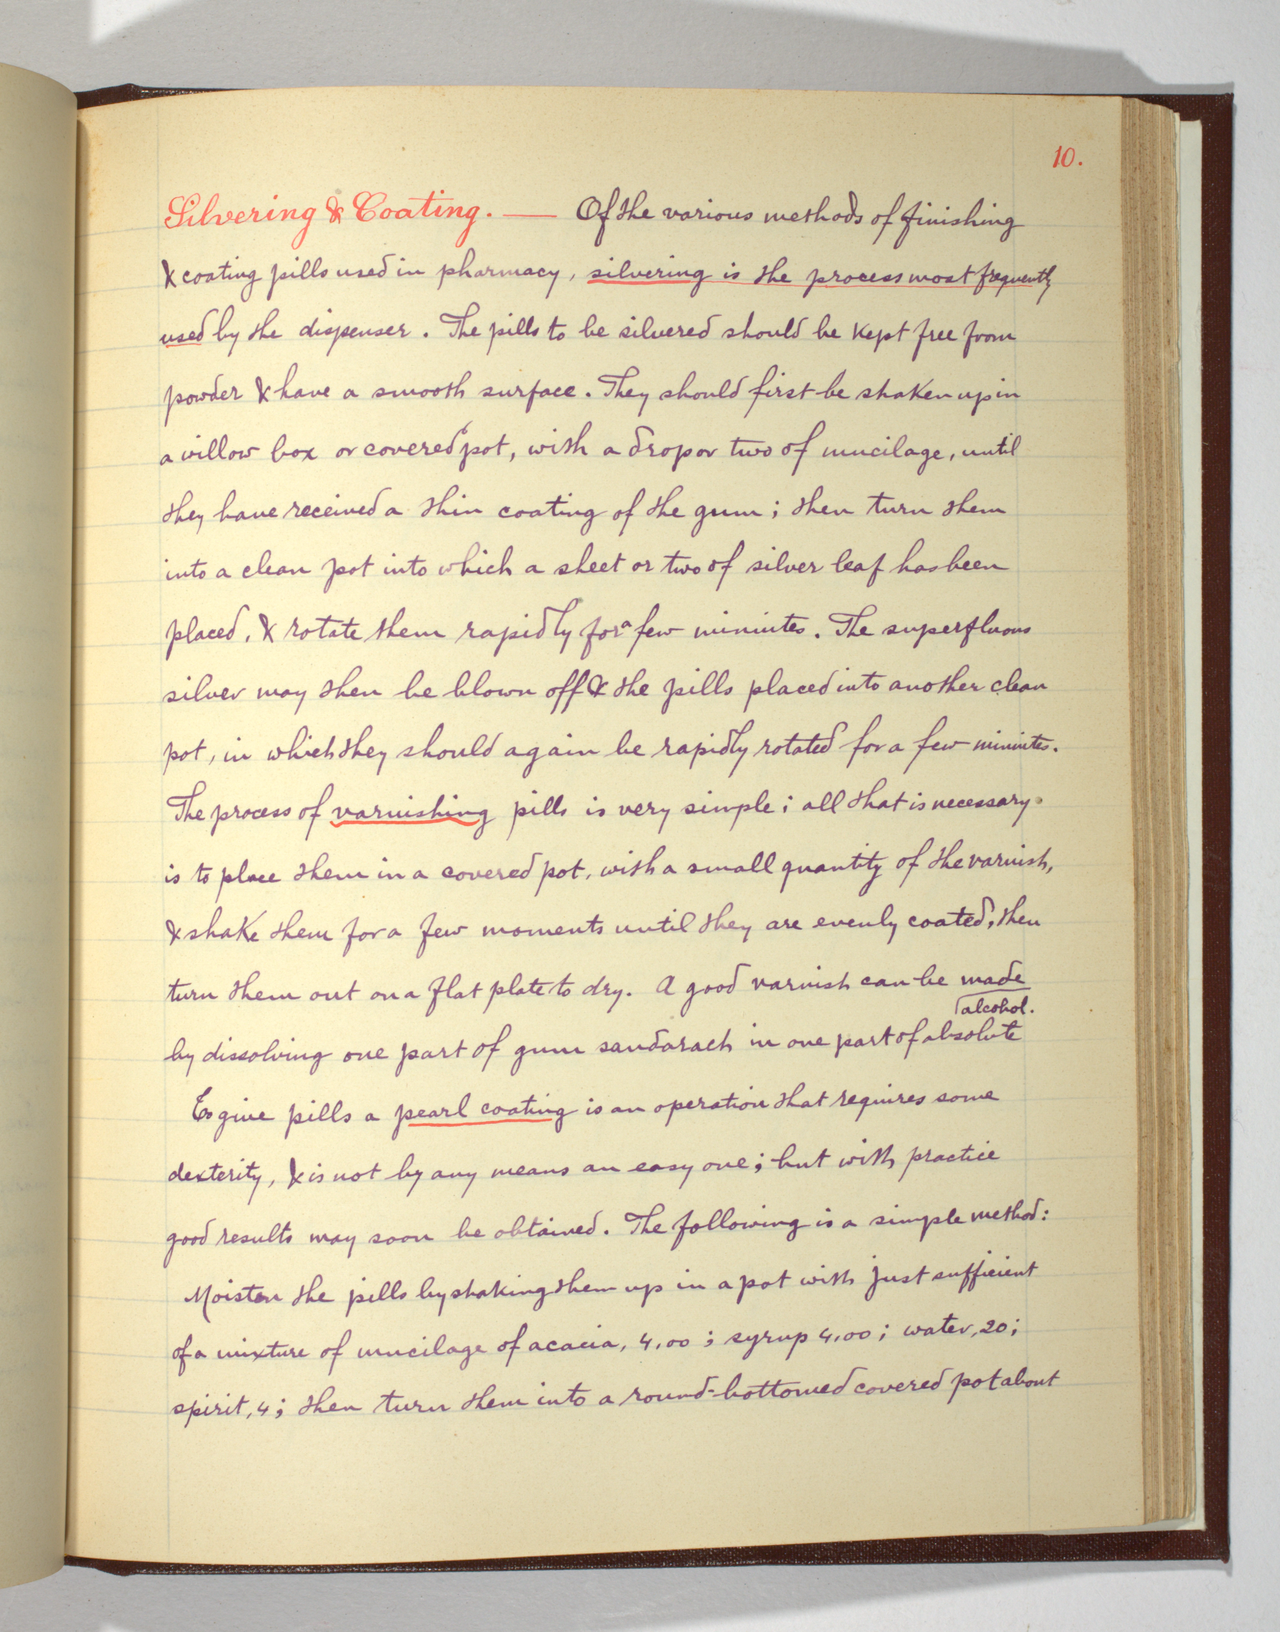 10.
Silvering & Coating. — Of the various methods of finishing
& coating pills used in pharmacy, silvering is the process most frequently
used by the dispenser. The pills to be silvered should be kept free from
powder & have a smooth surface. They should first be shaken up in
a willow box or covered pot, with a drop or two of mucilage, until
they have received a thin coating of the gum; then turn them
into a clean pot into which a sheet or two of silver leaf has been
placed, & rotate them rapidly for a few miniutes. The superfluous
silver may then be blown off & the pills placed into another clean
pot, in which they should again be rapidly rotated for a few miniutes.
The process of varnishing pills is very simple; all that is necessary
is to place them in a covered pot, with a small quantity of the varnish,
& shake them for a few moments until they are evenly coated, then
turn them out on a flat plate to dry. A good varnish can be made
by dissolving one part of gum sandarach in one part of absolute
alcohol.
To give pills a pearl coating is an operation that requires some
dexterity, & is not by any means an easy one; but with practice
good results may soon be obtained. The following is a simple method:
Moisten the pills by shaking them up in a pot with just sufficient
of a mixture of mucilage of acacia, 4,00; syrup 4,00; water, 20;
spirit, 4; then turn them into a round-bottomed covered pot about